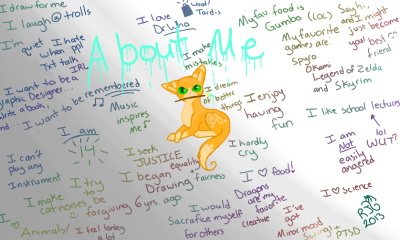 I draw for me
I laugh@trolls
I'm quiet
I hate
when ppl
Txt talk
IRL
I want to be a
Graphic Designer...
Write a book,
and...
I want to be remembered
I love
Dr. Who
woot!
Tardis
About Me
I make
mistakes
My fav food is
Gumbo (LOL)
My favorite
games are
Spyro
Okami
Legend of Zelda
and Skyrim
Say hi,
and I might
just become
your best
friend
I dream
of better
things
I enjoy
having
fun
Music
inspires
me
I am
14
I can't
play any
Instrument
I seek
JUSTICE
equality
fairness
I hardly
cry
I like school lectures
I am
Not
easily
angered
lol
WUT??
I try
to
be
forgiving
I began
Drawing
6 yrs ago
I ♡ food!
Dragons
are my
favorite
creature
I ♡ Science
I make
cat noises
I ♡
Animals!
I feel lonley
a lot
I would
Sacrafice myself
for others
I've
got
Minor mood
Swings
PTSD
2013